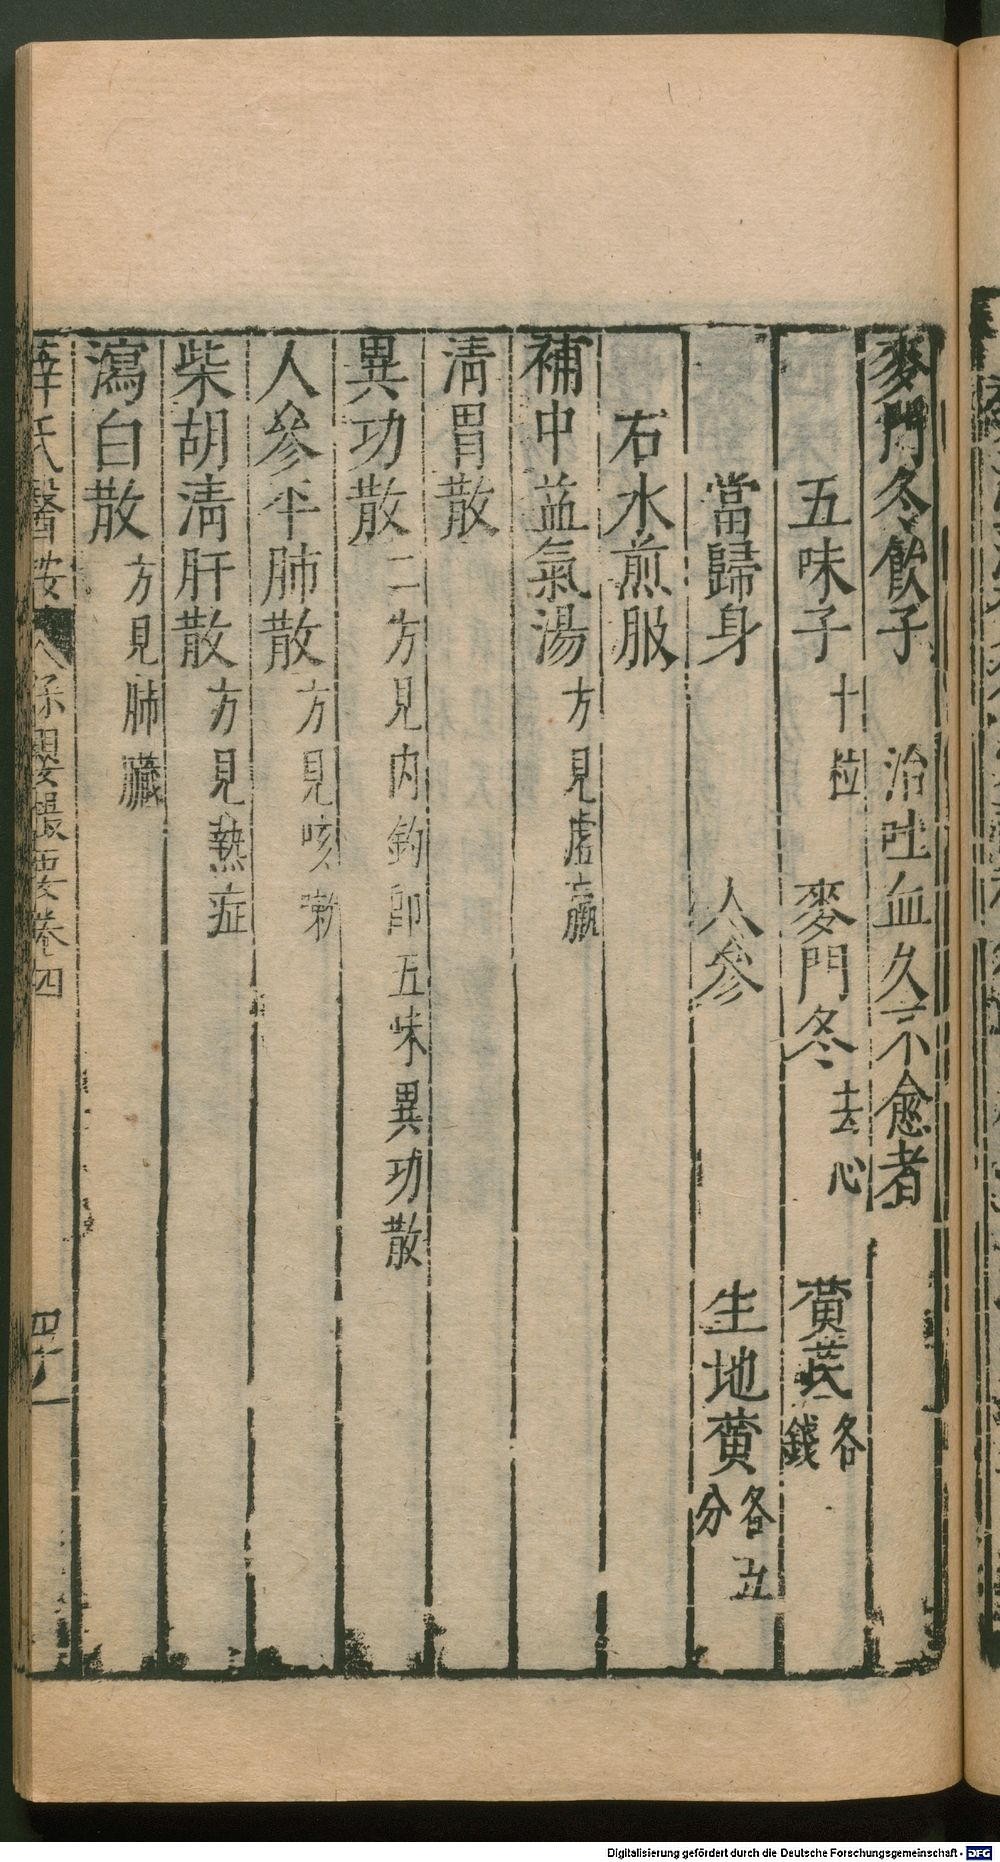 麥門冬飲子　治吐血久不愈者
五味子十粒　麥門冬去心　黄芪各錢
當歸身　人參　生地黄各五分
右水煎服
補中益氣湯方見虚羸
清胃散
異功散二方見内鈞卽五味異功散
人參平肺散方見咳嗽
柴胡清肝散方見熱症
瀉白散方見肺臟
薛氏醫按　保嬰撮要卷四
Digitalisierung gefördert durch die Deutsche Forschungsgemeinschaft - DFG